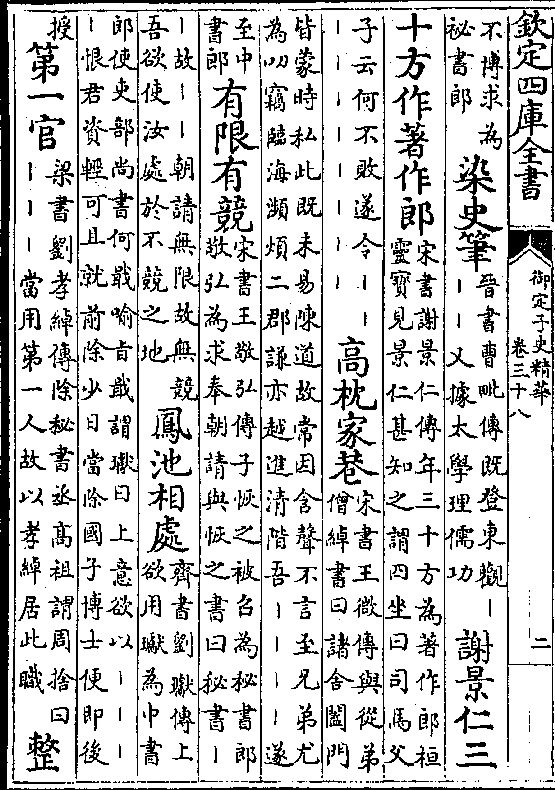 欽定四庫全書
御定子史精華
卷三十八
二
不博求為
秘書郎
染史筆
晉書曹毗傳既登東觀丨
丨丨又據太學理儒功
謝景仁三
十方作著作郎
宋書謝景仁傳年三十方為著作郎桓
靈寶見景仁甚知之謂四坐曰司馬父
子云何不敗遂令丨丨
丨丨丨丨丨
高枕家巷
宋書王微傳與從弟
僧綽書曰諸舍闔門
皆蒙時私此既未易陳道故常因含聲不言至兄弟尤
為叨竊臨海瀕煩二郡謙亦越進清階吾丨丨丨丨遂
至中
書郎
有限有競
宋書王敬弘傳子恢之被召為秘書郎
敬弘為求奉朝請與恢之書曰秘書丨
丨故丨丨朝請無限故無競
吾欲使汝處於不競之地
鳳池相處
齊書劉瓛傳上
欲用瓛為中書
郎使吏部尚書何戢喻旨戢謂瓛曰上意欲以丨丨丨
丨恨君資輕可且就前除少日當除國子博士便即後
授
第一官
梁書劉孝綽傳除秘書丞高祖謂周捨曰
丨丨丨當用第一人故以孝綽居此職
整